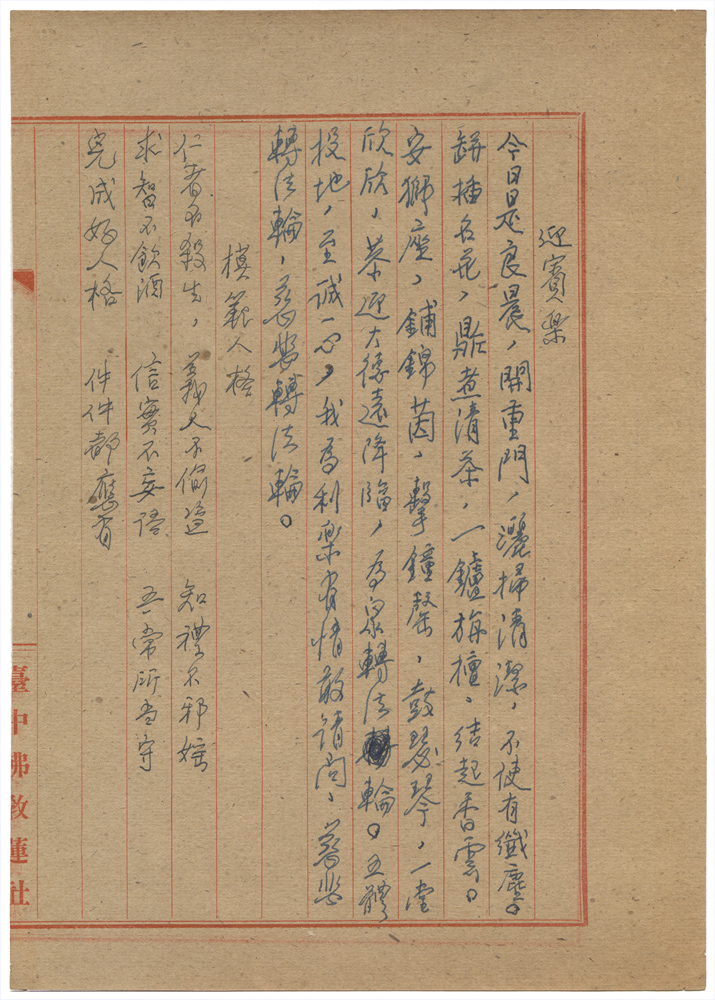 迎賓樂
今日是良晨,開重門,灑掃清潔,不使有纖塵,
缾插名花,鼎煮清茶,一鑪旃檀。結起香雲。
安獅座,鋪錦茵,擊鐘罄,鼓瑟琴,一堂
欣欣,恭迎大德遠降臨,為眾轉法輪。五體
投地,至誠一心,我為利樂有情敢請問,慈悲
轉法輪,慈悲轉法輪。
模範人格
仁者不殺生, 義人不偷盜 知禮不邪婬
求智不飲酒 信實不妄語 五常所當守
完成好人格 件件都應有
臺中佛教蓮社